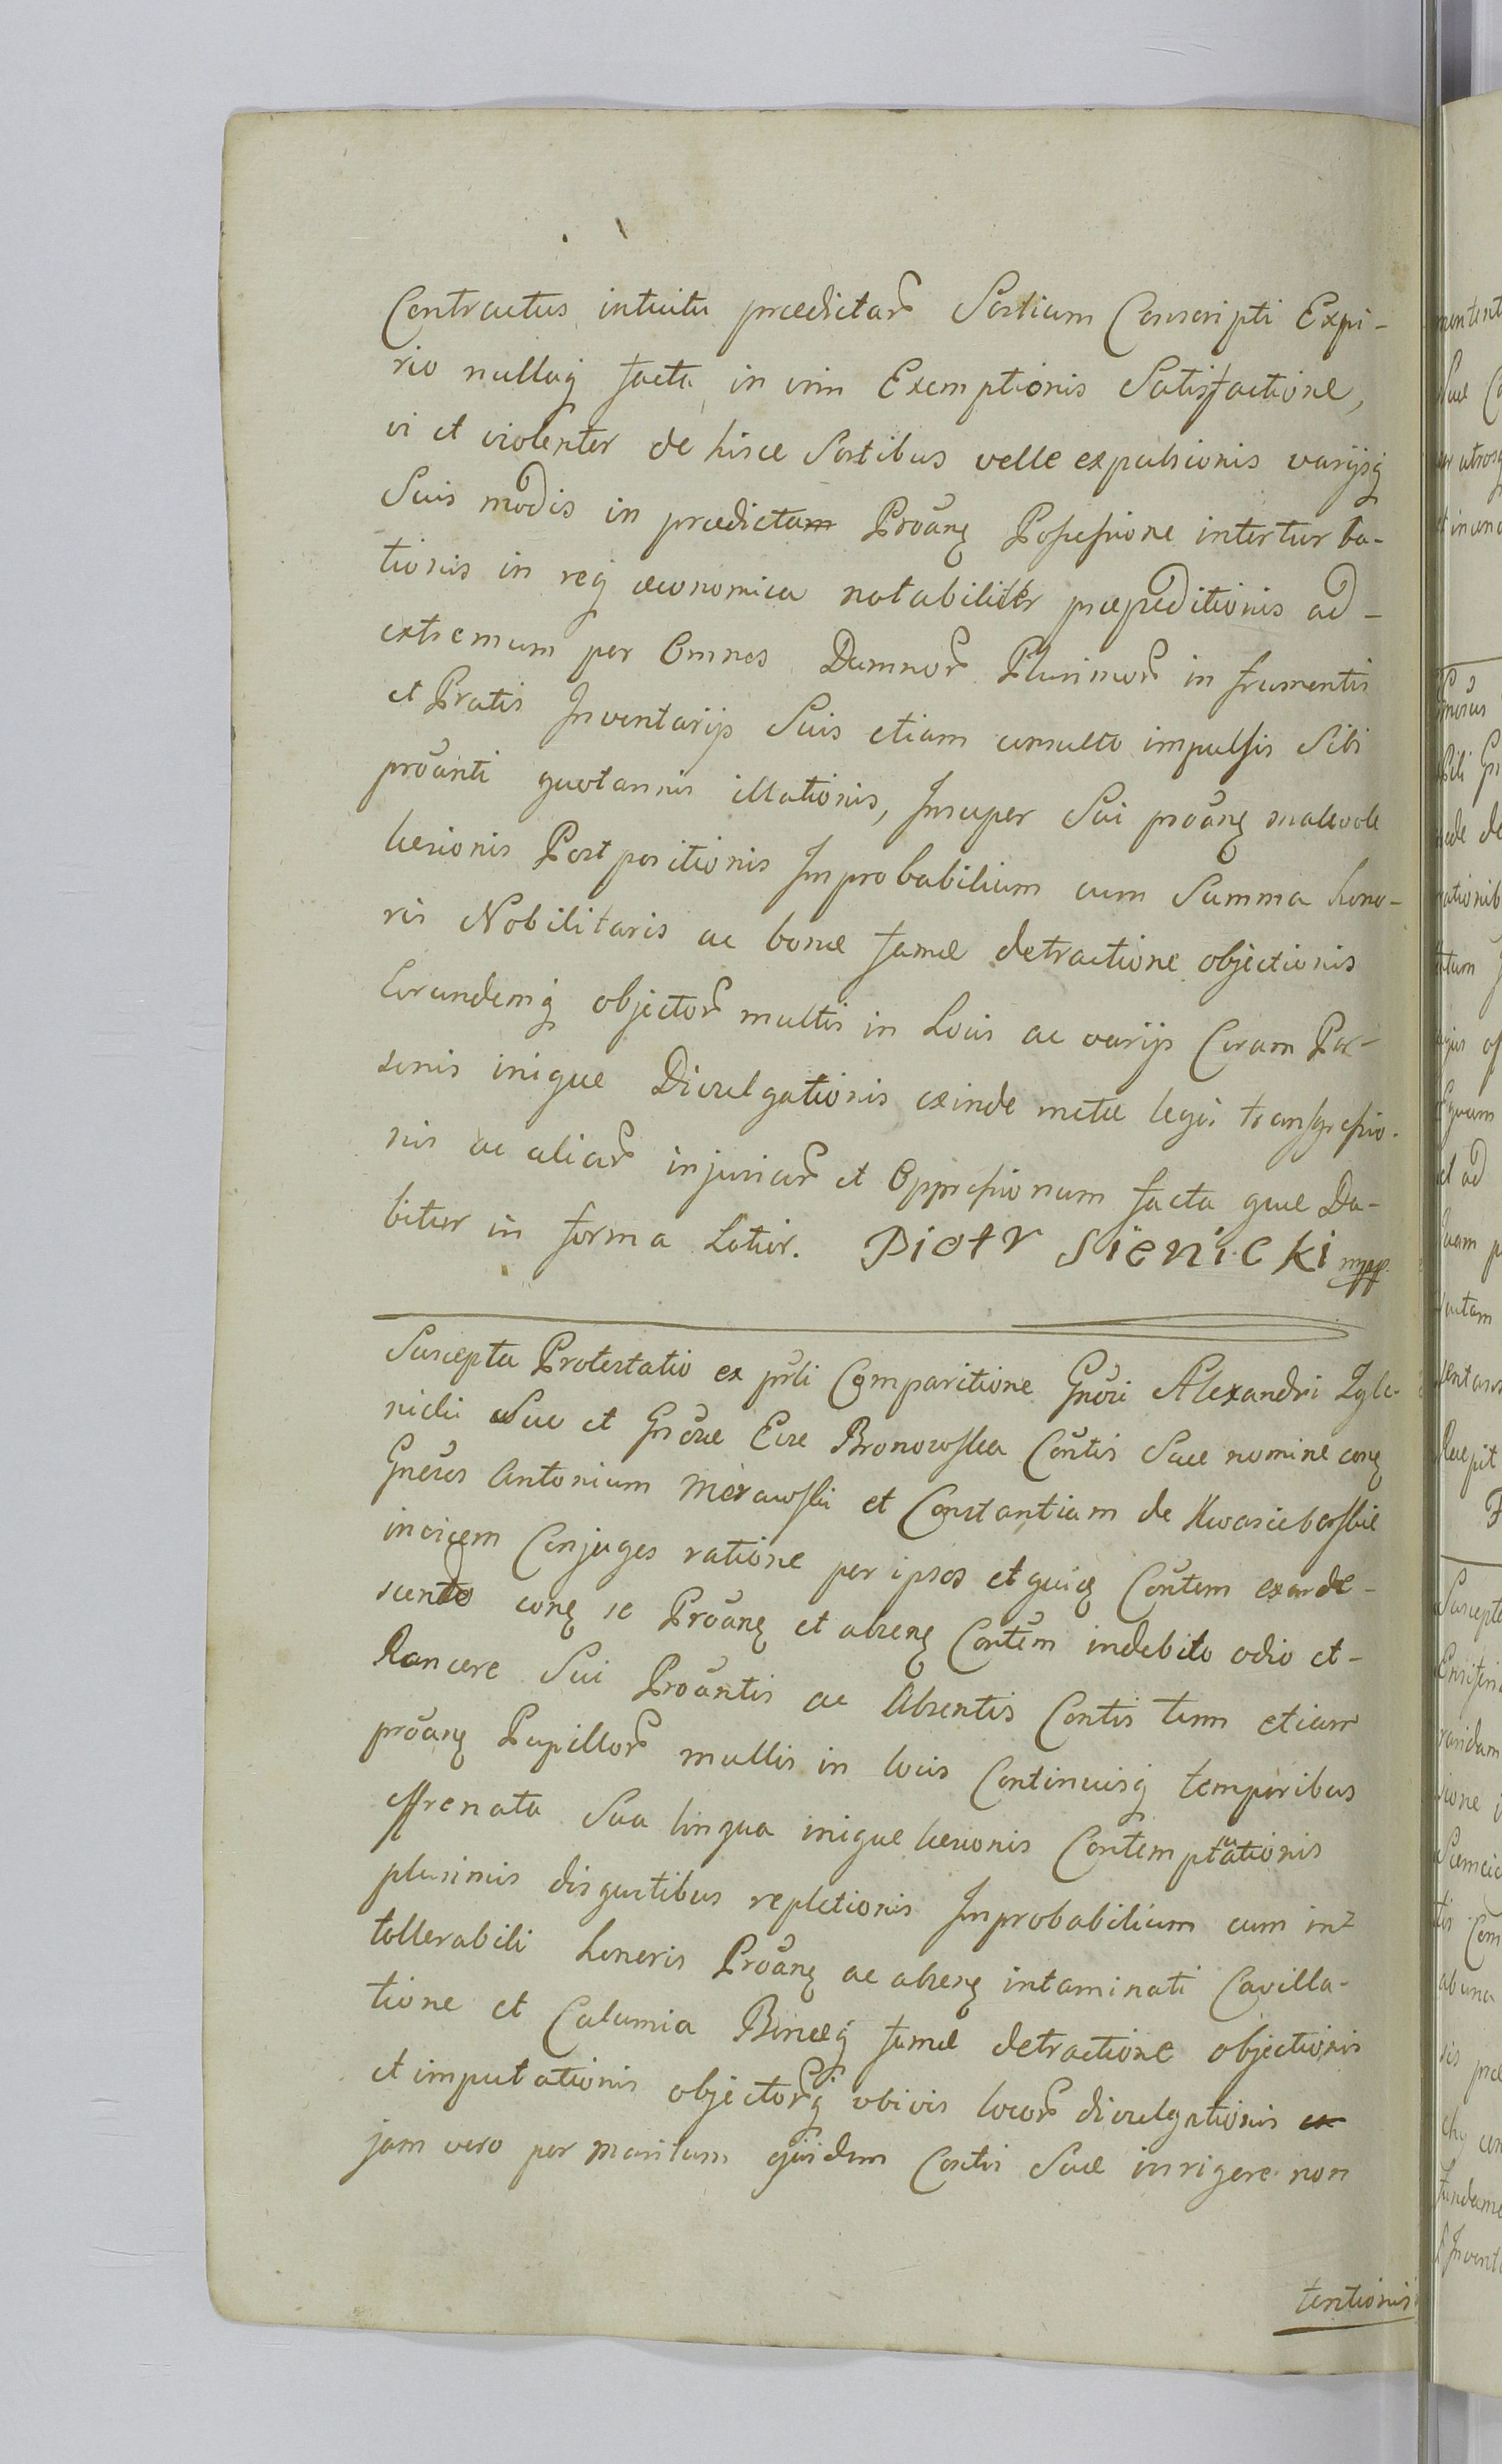 Contractus intuitu prædictarũ Sortium Conscripti Expi-
rio nullaq facta in vim Exemptionis Satisfactione,
vi et violenter de hisce Sortibus velle expulsionis varijsq
Suis modis in prædicta Proãnς Possessione interturba-
tionis in req œconomica notabiliter præpeditionis ad-
extremum per Omnes Damnorũ Plurimorũ in frumentis
et Pratis Inventarijs Suis etiam consulto impulsis Sibi
proãnti quotannis illationis, Insuper Sui proãnς malevole
læsionis Postpositionis Improbabilium cum Summa hono-
ris Nobilitaris ac bonæ famæ detractione objectionis
Eorundemq objectorũ multis in Locis ac varijs Coram Per-
sonis inique Divulgationis exinde metæ legis transgressio-
nis ac aliarũ injuriarũ et Oppressionum facta quæ Da-
bitur in forma Latior. Piotr Sienicki mpp.
Suscepta Protestatio ex pñli Comparitione Gñosi Alexandri Zgle-
nicki Suo et Gñosæ Evæ Bronowska Cõntis Suæ nomine conς
Gñosos Antonium Merawski et Constantiam de Kwasieborskie
invicem Conjuges ratione per ipsos et quiς Cõntem exarde-
scente conς se Proãnς et absenς Contem indebito odio et-
Rancore Sui Proãntis ac Absentis Contis tum etiam
proãnς Pupillorũ multis in locis Continuisq temporibus
effrenata Sua lingua inique læsionis Contemptationis
plurimis disgustibus repletionis Improbabilium cum in-
tollerabili honoris Proãnς ac absenς intaminati Cavilla-
tione et Calumia Bonæq famæ detractione objectionis
et imputationis objectorũq ubivis locorũ divulgationis
jam vero per maritum ejusdem Contis Suæ in rigore non
tentionis